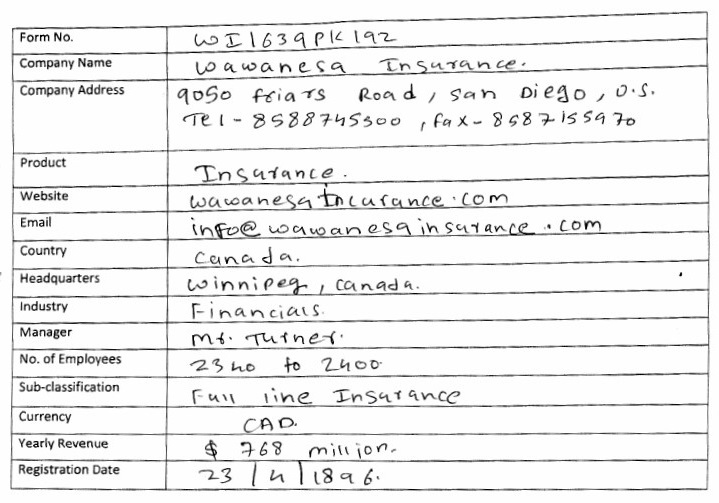 Form No. WI1639PK192
Company Name Wawanesa Insurance.
Company Address 9050 friars Road, san Diego, U.S.
Tel - 8588745300, fax - 8587155970
Product Insurance.
Website wawanesaincurance.com
Email info@wawanesainsurance.com
Country Canada.
Headquarters Winnipeg, Canada.
Industry Financials.
Manager Mr. Turner.
No. of Employees 2340 to 2400
Sub-classification Full line Insurance
Currency CAD.
Yearly Revenue $ 768 million.
Registration Date 23/4/1896.